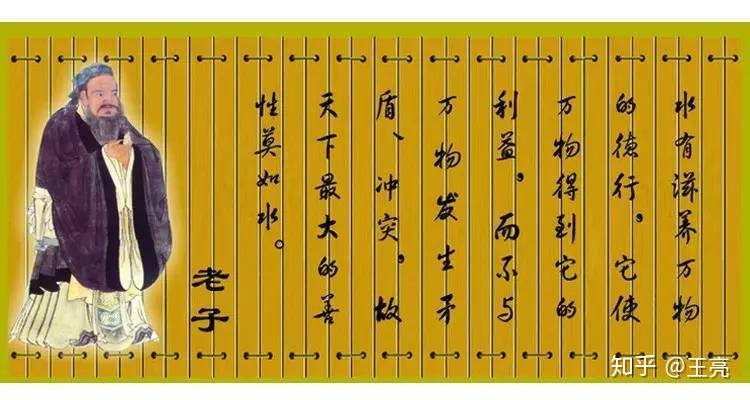 水有滋养万物
的德行，它使
万物得到它的
利益，而不与
万物发生矛
盾、冲突，故
天下最大的善
性莫如水。
老子
知乎 @王亮